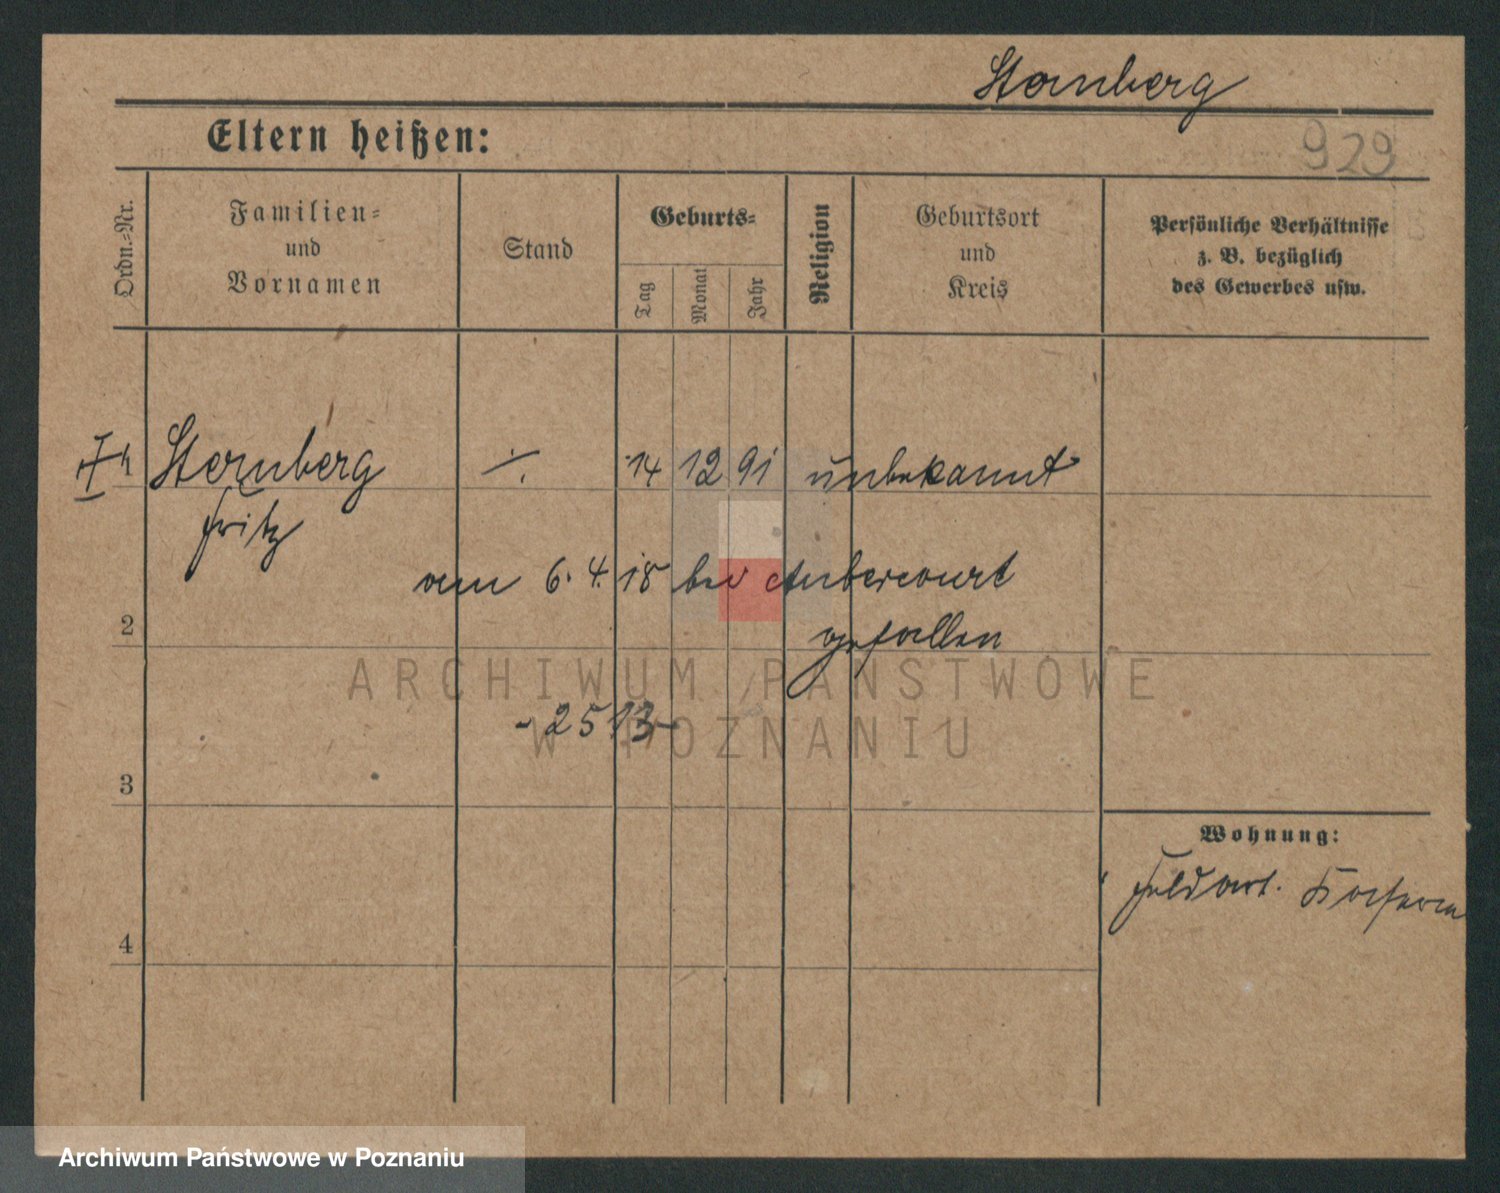 Sternberg
Eltern heißen:
929
Ordn.=Nr.
Familien=
und
Vornamen
Stand
Geburts=
Tag
Monat
Jahr
Religion
Geburtsort
und
Kreis
Persönliche Verhältnisse
z. B. bezüglich
des Gewerbes usw.
1 Sternberg ./. 14 12 91 unbekannt
Fritz
am 6. 4. 18 bei Aubercourt
2
gefallen
ARCHIWUM PAŃSTWOWE
W POZNANIU
-2513-
3
Wohnung:
Feldart. Kaserne
4
Archiwum Państwowe w Poznaniu